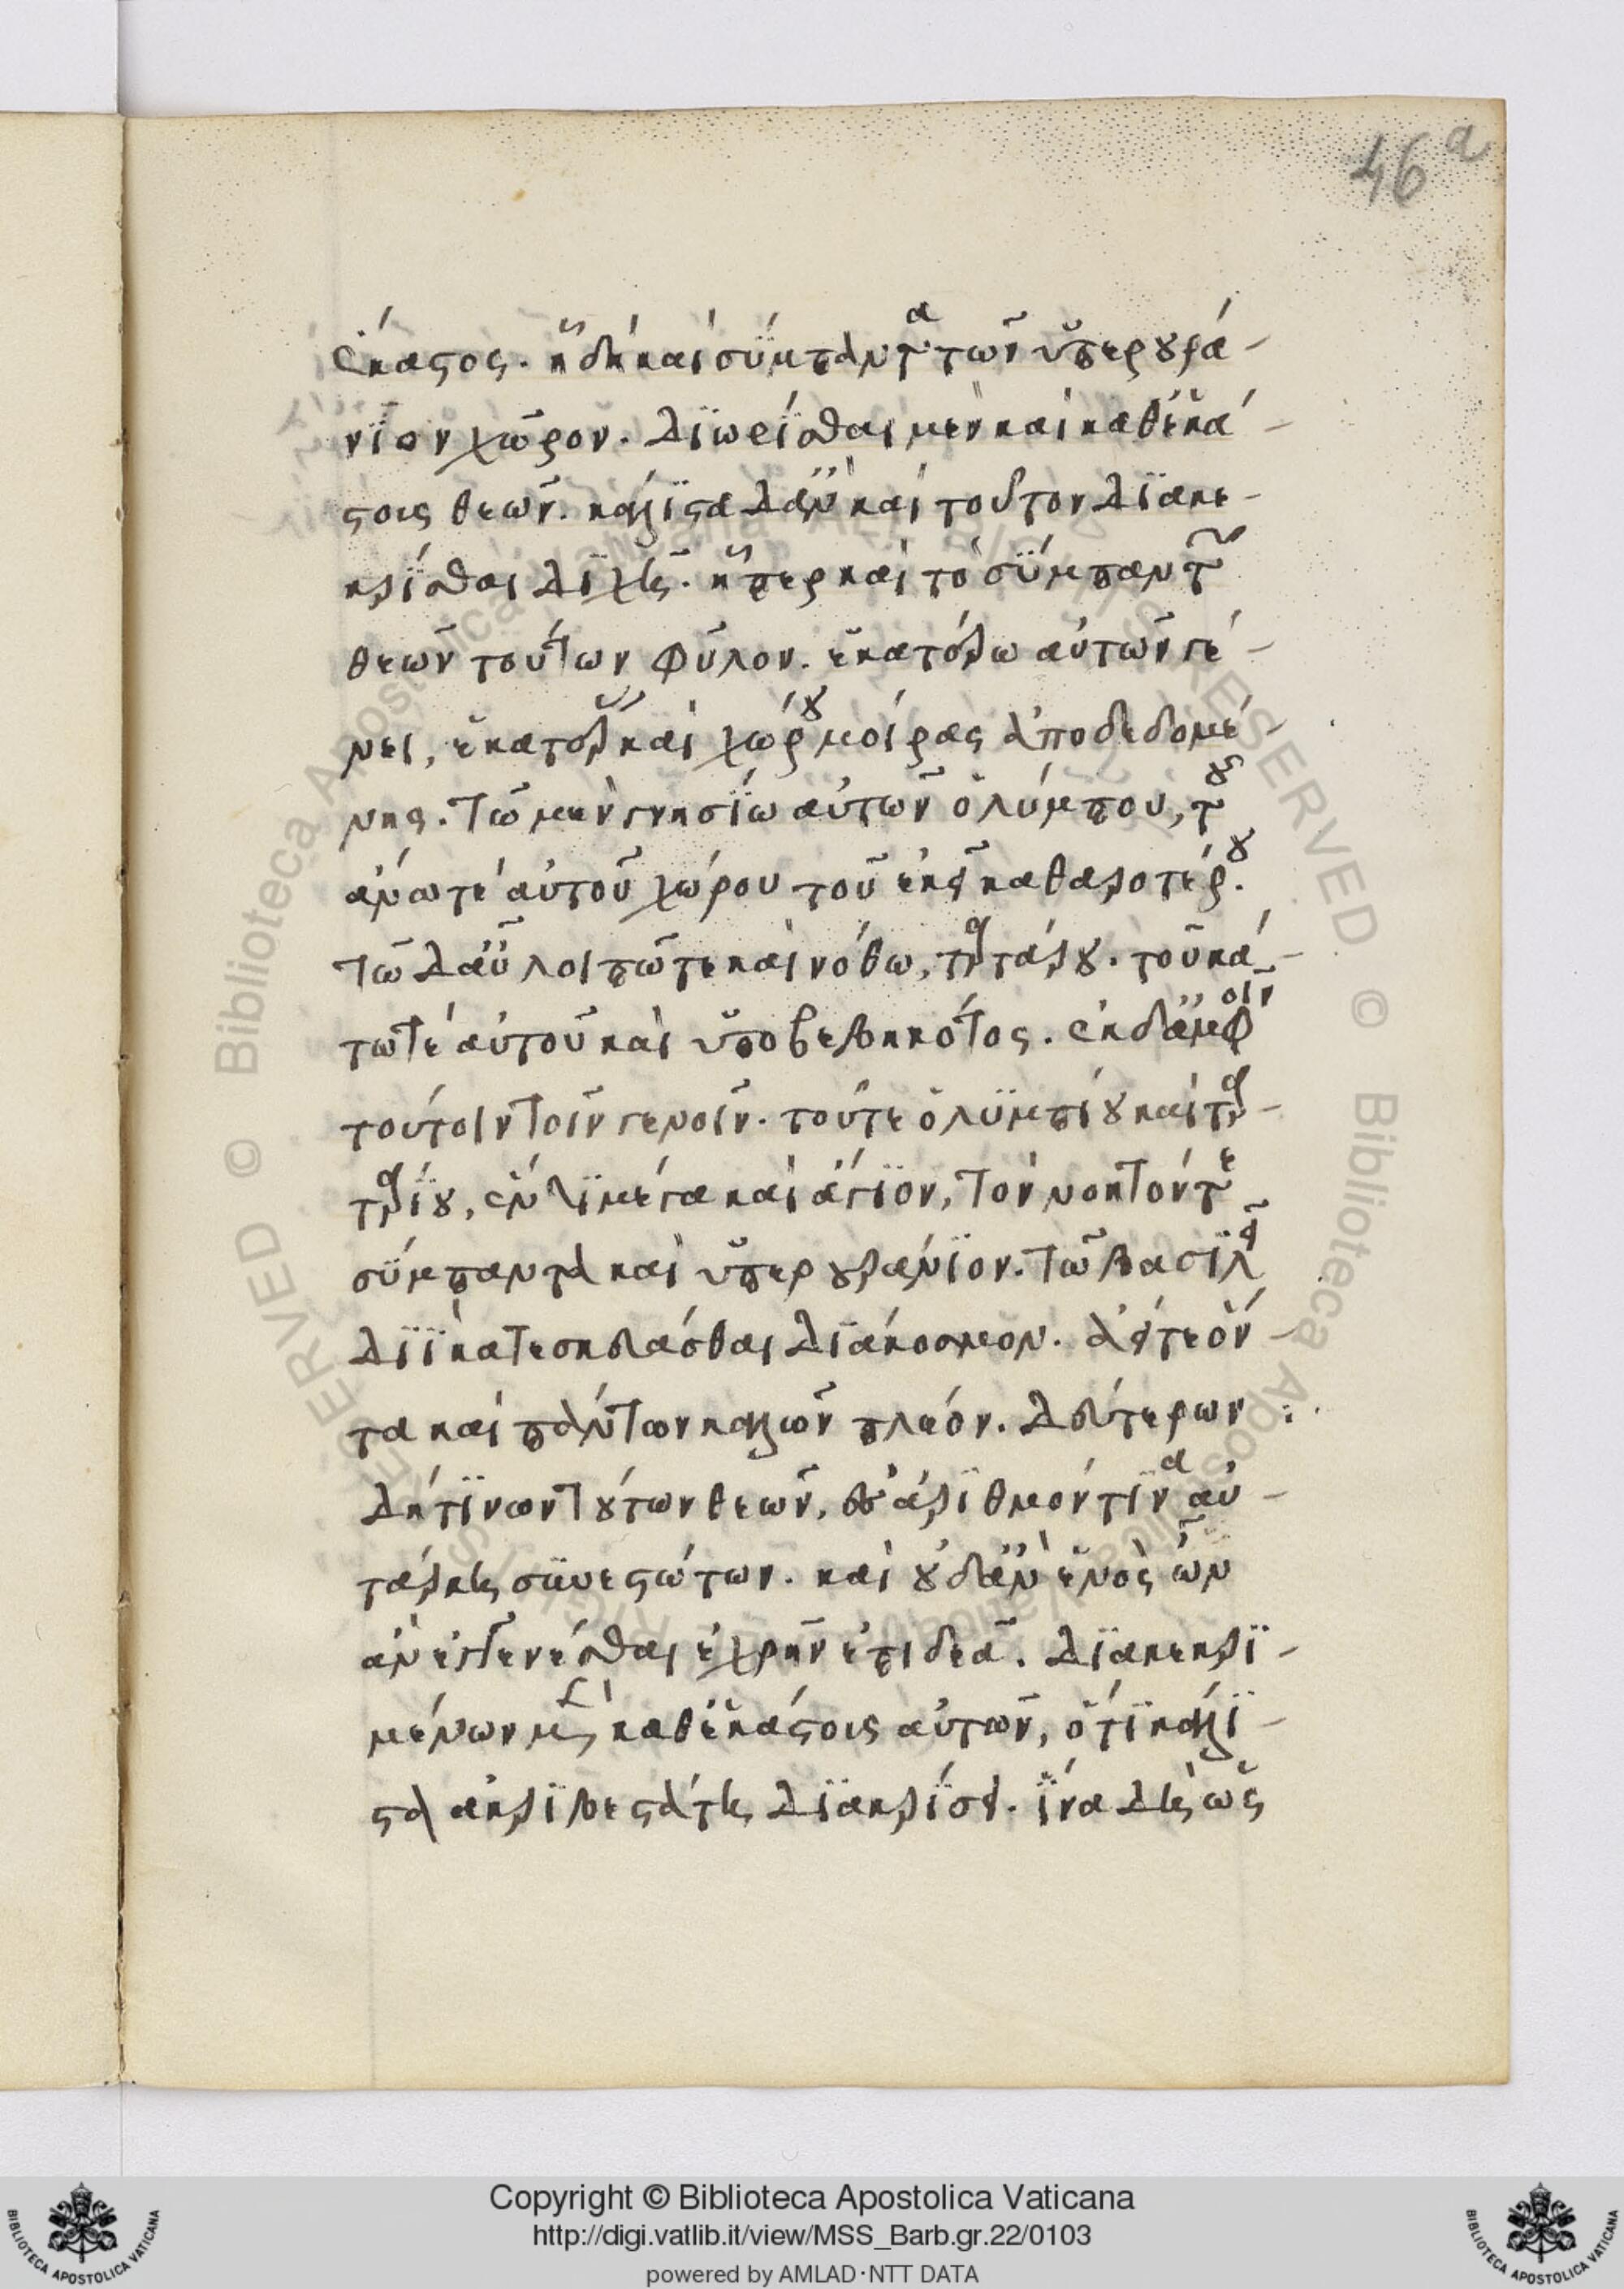 46a
ἕκαστος. ἤδη καὶ σύμπαντα τὸν ὑπερουρά-
νιον χῶρον. διῃρῆσθαι μὲν καὶ καθ' ἑκά-
στοις θεῶν. κάλλιστα δ' ἂν καὶ τοῦτον διακε-
κρίσθαι διχῆ. ᾗπερ καὶ τὸ σύμπαν τῶν
θεῶν τούτων φῦλον. ἑκατέρῳ αὐτῶν γέ-
νει, ἑκατέρας καὶ χώρου μοίρας ἀποδεδομέ-
νης. τῷ μὲν γνησίῳ αὐτῶν ὀλύμπου, τοῦ
ἀνωτέ αὐτοῦ χώρου τοῦ ἐκεῖ καθαρωτέρου.
τῷ δ' αὖ λοιπῷ τε καὶ νόθῳ, ταρτάρου. τοῦ κά-
τω τε αὐτοῦ καὶ ὑποβεβηκότος. ἐκ δ' ἀμφοῖν
τούτοιν τοῖν γενοῖν. τοῦ τε ὀλυμπίου καὶ ταρ-
ταρίου, ἕν τι μέγα καὶ ἅγιον, τὸν νοητόν τε
σύμπαντα καὶ ὑπερουράνιον. τῷ βασιλεῖ
Διὶ κατεσκευάσθαι διάκοσμον. ἀεί τε ὄν-
τα καὶ πάντων καλῶν πλέον. δευτέρων
δή τινων τούτων θεῶν, εἰς ἀριθμόν τινα αὐ-
τάρκη συνεστώτων. καὶ οὐδ' ἂν ἑνὸς ὧν
ἂν ἐγγενέσθαι ἐχρῆν ἐπιδεᾶ. διακεκρι-
μένων μὲν καθ' ἑκάστοις αὐτῶν, ὅτι κάλλι-
στα ἀκριβεστάτῃ διακρίσει. ἵνα δὴ ὡς
Copyright © Biblioteca Apostolica Vaticana
http://digi.vatlib.it/view/MSS_Barb.gr.22/0103
powered by AMLAD·NTT DATA
BIBLIOTECA APOSTOLICA VATICANA
BIBLIOTECA APOSTOLICA VATICANA